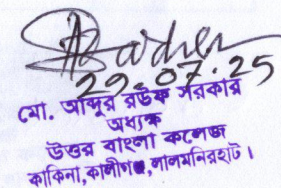 29.07.25
মো. আব্দুর রউফ সরকার
অধ্যক্ষ
উত্তর বাংলা কলেজ
কাকিনা, কালীগঞ্জ, লালমনিরহাট।